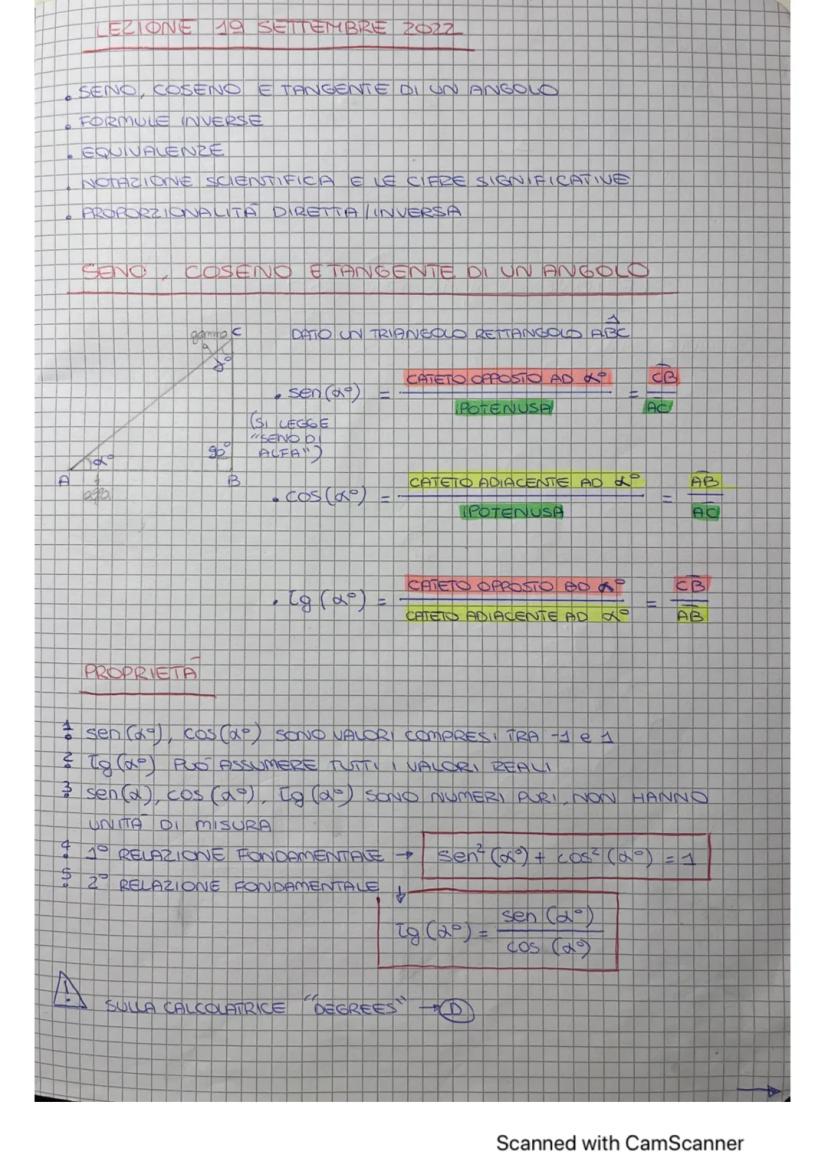 LEZIONE 19 SETTEMBRE 2022
• SENO, COSENO E TANGENTE DI UN ANGOLO
• FORMULE INVERSE
• EQUIVALENZE
• NOTAZIONE SCIENTIFICA E LE CIFRE SIGNIFICATIVE
• PROPORZIONALITÀ DIRETTA / INVERSA
SENO, COSENO E TANGENTE DI UN ANGOLO
gamma C
γ°
DATO UN TRIANGOLO RETTANGOLO AB̂C
• sen(α°) = CATETO OPPOSTO AD α° / IPOTENUSA = CB / AC
(SI LEGGE
"SENO DI
ALFA")
α° 90°
A B
alfa
• cos(α°) = CATETO ADIACENTE AD α° / IPOTENUSA = AB / AC
• tg(α°) = CATETO OPPOSTO AD α° / CATETO ADIACENTE AD α° = CB / AB
PROPRIETÀ
1. sen(α°), cos(α°) SONO VALORI COMPRESI TRA -1 e 1
2. tg(α°) PUÒ ASSUMERE TUTTI I VALORI REALI
3. sen(α), cos(α°), tg(α°) SONO NUMERI PURI, NON HANNO
UNITÀ DI MISURA
4. 1° RELAZIONE FONDAMENTALE → sen²(α°) + cos²(α°) = 1
5. 2° RELAZIONE FONDAMENTALE ↓
tg(α°) = sen(α°) / cos(α°)
! SULLA CALCOLATRICE "DEGREES" → D
→
Scanned with CamScanner